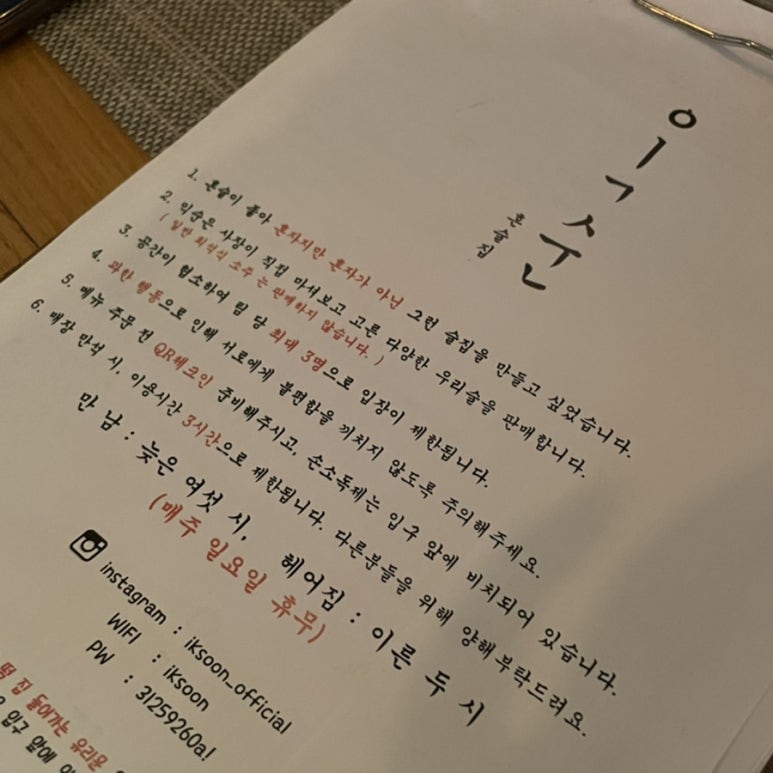 익순
혼술집
1. 혼술이 좋아 혼자지만 혼자가 아닌 그런 술집을 만들고 싶었습니다.
2. 익순은 사장이 직접 마셔보고 고른 다양한 우리술을 판매합니다.
( 일반 희석식 소주 는 판매하지 않습니다. )
3. 공간이 협소하여 팀 당 최대 3명으로 입장이 제한됩니다.
4. 과한 행동으로 인해 서로에게 불편함을 끼치지 않도록 주의해주세요.
5. 메뉴 주문 전 QR체크인 준비해주시고, 손소독제는 입구 앞에 비치되어 있습니다.
6. 매장 만석 시, 이용시간 3시간으로 제한됩니다. 다른분들을 위해 양해부탁드려요.
만 남 : 늦은 여섯 시, 헤어짐 : 이른 두 시
(매주 일요일 휴무)
instagram : iksoon_official
WIFI : iksoon
PW : 31259260a!
집 들어가는 유리문
입구 앞에